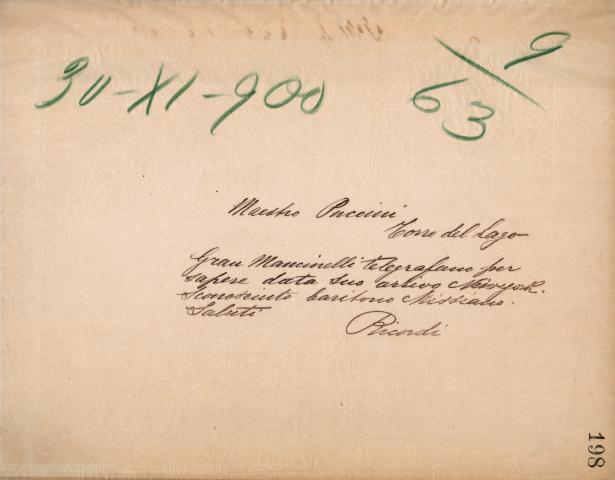 30-XI-900
9
63
Maestro Puccini
Torre del Lago
Grau Mancinelli telegrafano per
sapere data suo arrivo Newyork.
Sconosciuto baritono Missiano.
Saluti
Ricordi
198